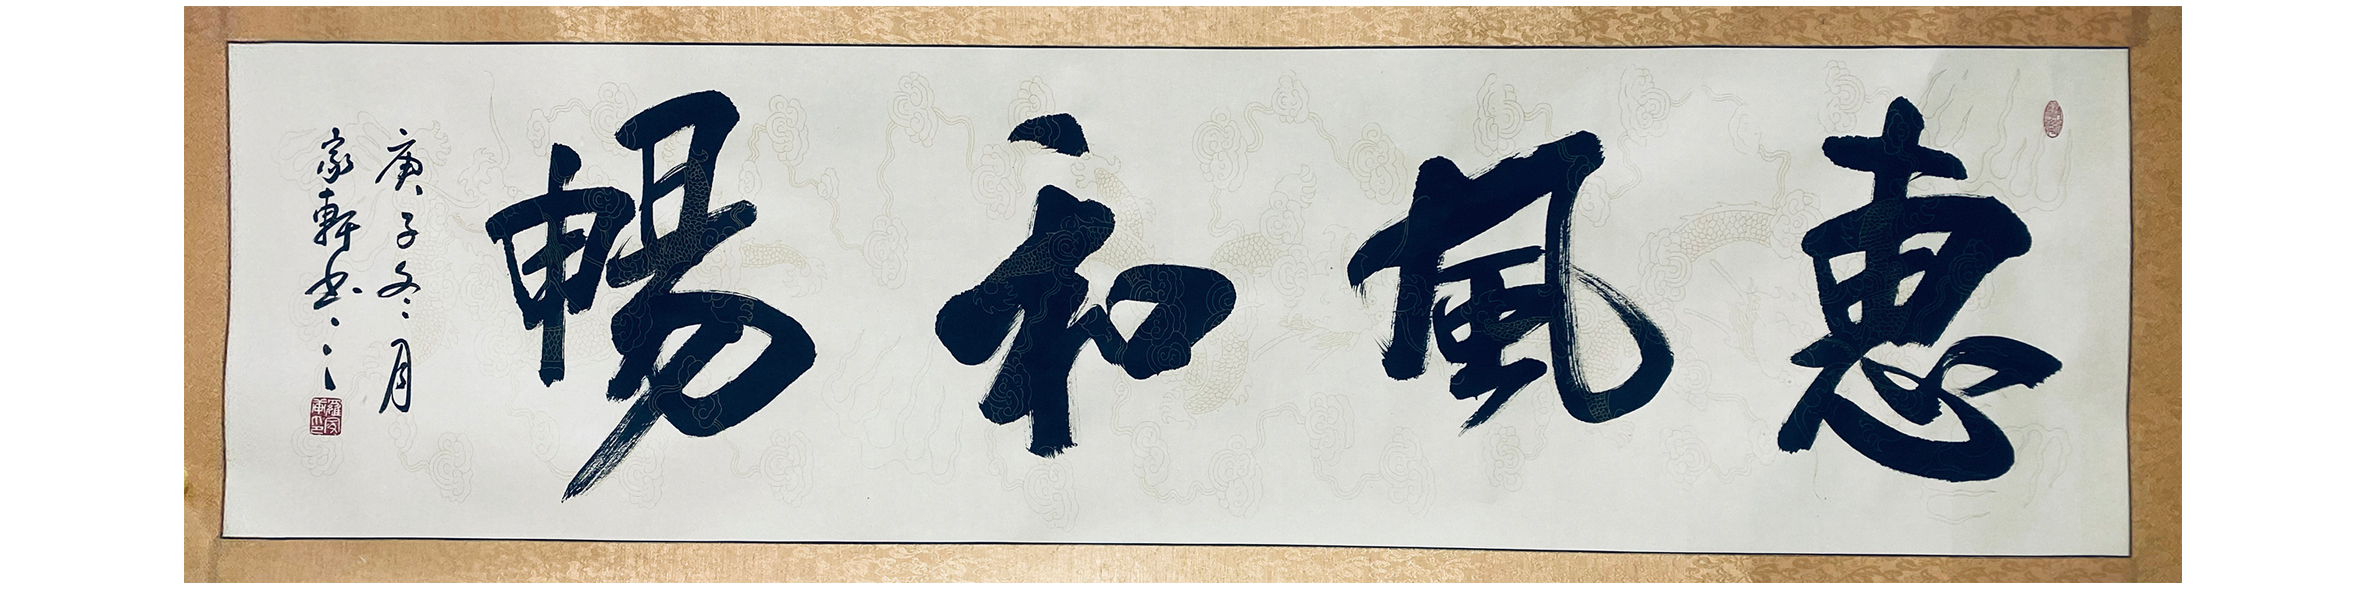 惠風和暢
庚子冬月
家軒书